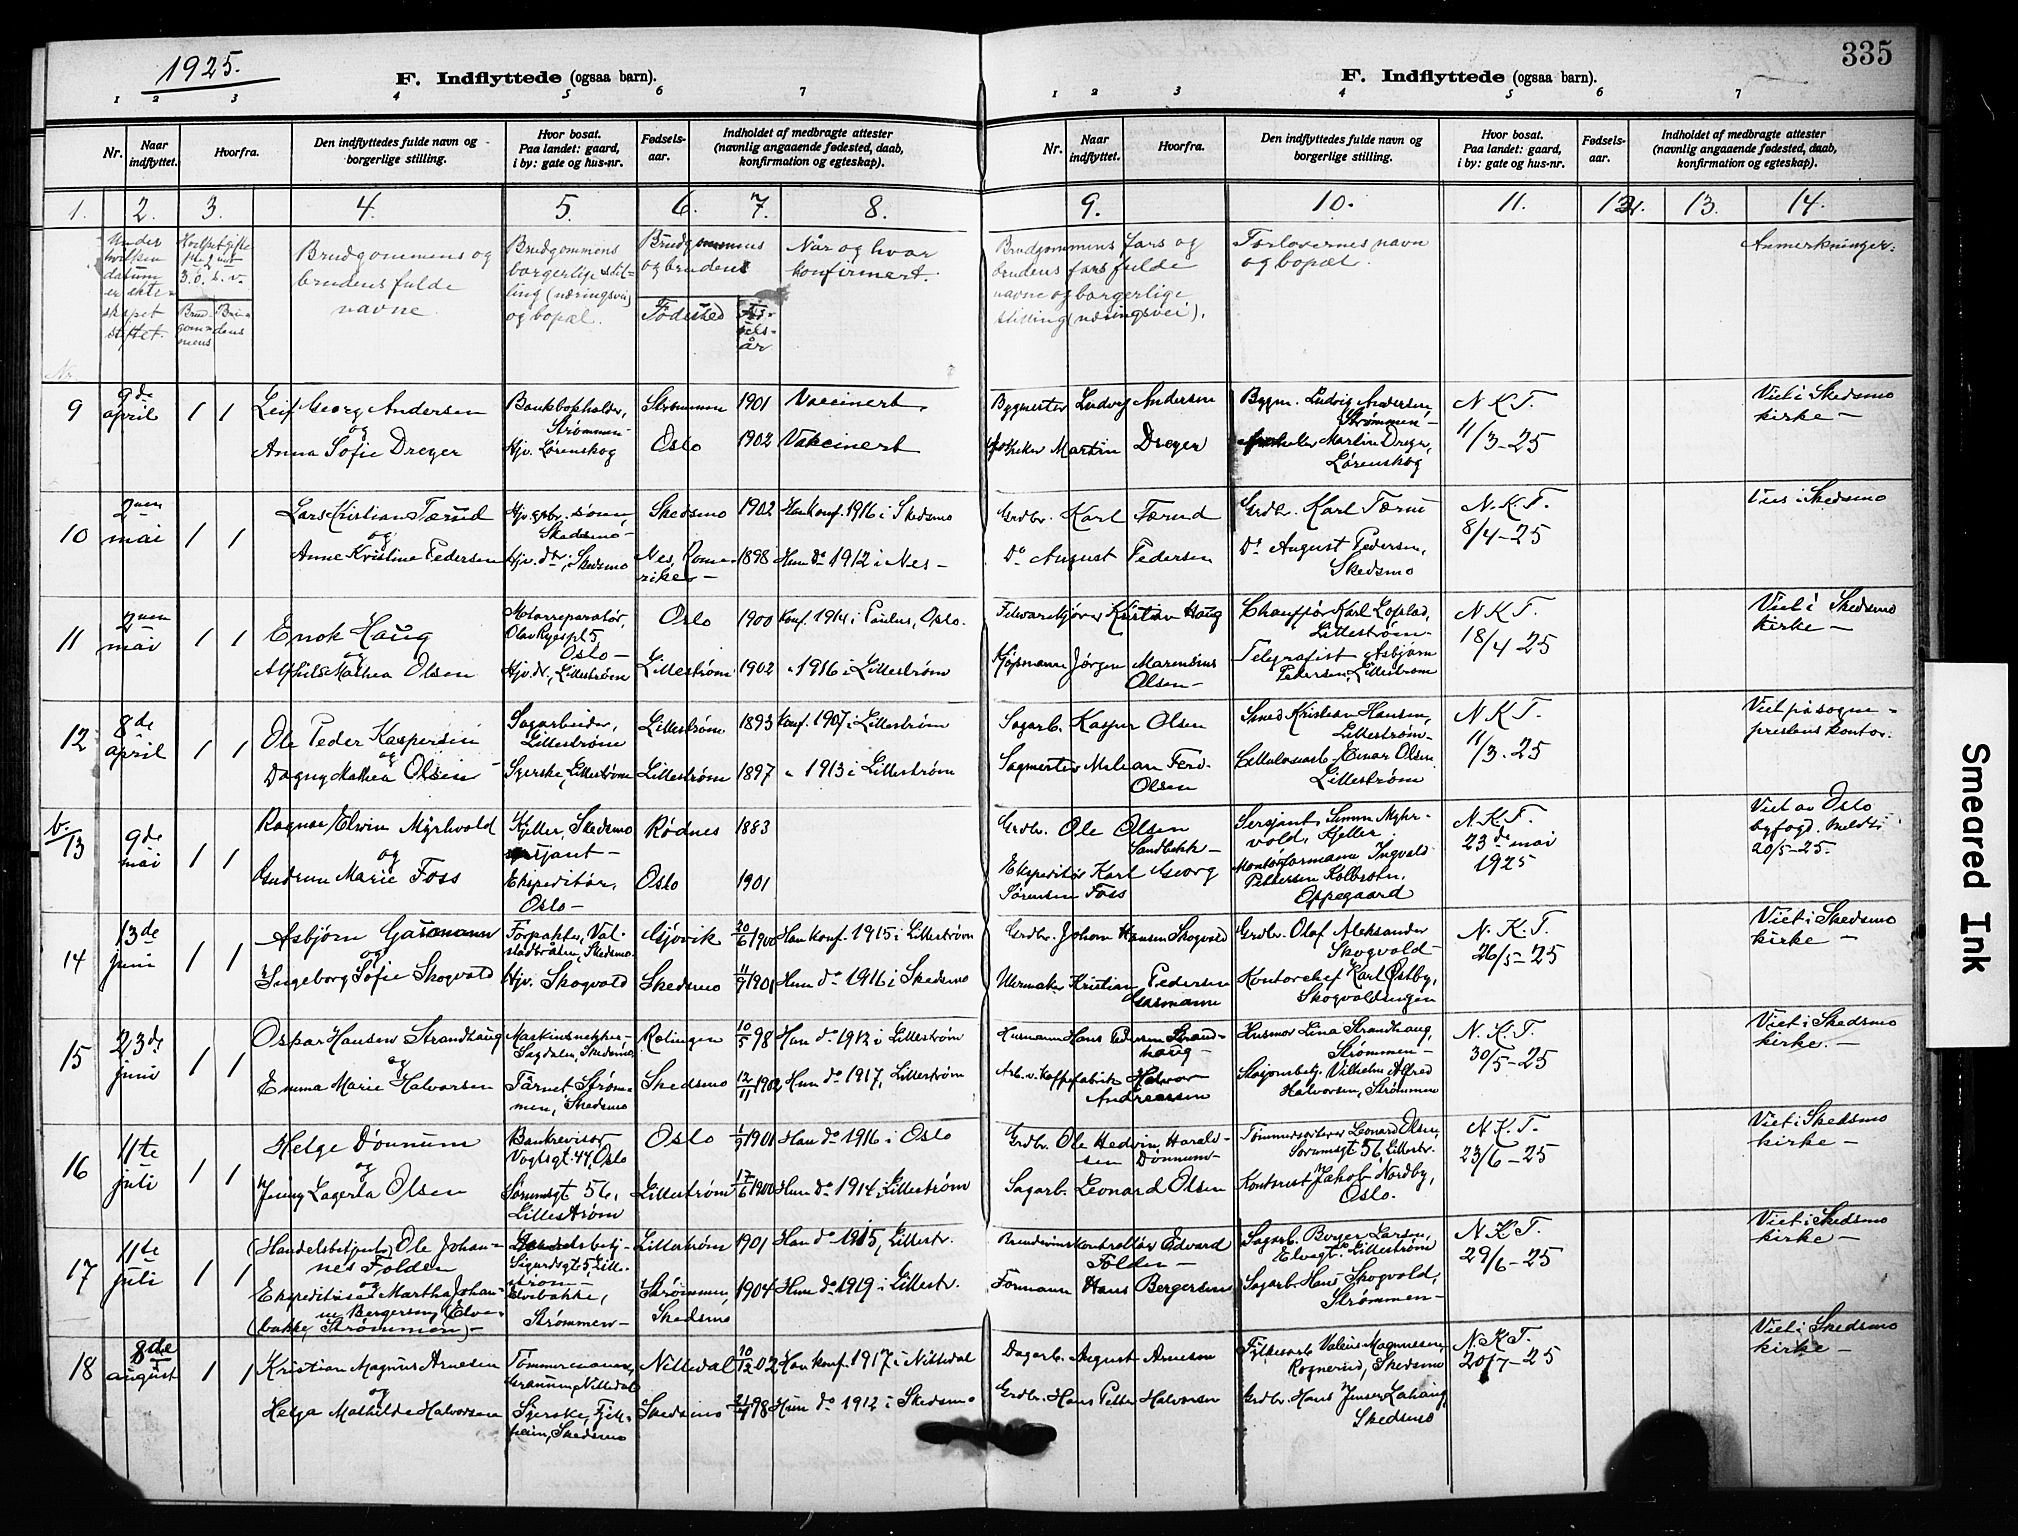 1925.
F. Indflyttede (ogsaa barn).
1 2 3 4 5 6 7
Nr.
Naar indflyttet.
Hvorfra.
Den indflyttedes fulde navn og borgerlige stilling.
Hvor bosat. Paa landet: gaard, i by: gate og hus-nr.
Fødsels-aar.
Indholdet af medbragte attester (navnlig angaaende fødested, daab, konfirmation og egteskap).
335
F. Indflyttede (ogsaa barn).
1 2 3 4 5 6 7
Nr.
Naar indflyttet.
Hvorfra.
Den indflyttedes fulde navn og borgerlige stilling.
Hvor bosat. Paa landet: gaard, i by: gate og hus-nr.
Fødsels-aar.
Indholdet af medbragte attester (navnlig angaaende fødested, daab, konfirmation og egteskap).
1. 2. 3. 4. 5. 6. 7. 8. 9. 10. 11. 12. 13. 14.
Under hvilken datum er ekte-skapet stiftet.
Brudgommens og brudens fulde navne
Brudgommens borgerlige stilling (næringsvei) og bopæl.
Brudgommens og brudens
Fødested
Fødselsår
Når og hvor konfirmert.
Brudgommens fars og brudens fars fulde navne og borgerlige stilling (næringsvei).
Forlovernes navn og bopæl.
Anmerkninger.
Nr.
9 9de april 1 1 Leif Georg Andersen Strømmen 1901 Vaccinert. Bygmester Ludvig Andersen Bygm. Ludvig Andersen, Strømmen - N.K.T. Viet i Skedsmo
og
Anna Sofie Dreyer Hjv. Lørenskog Oslo 1902 Vakcinert Martin Dreyer Martin Dreyer, Lørenskog 11/3-25 kirke -
10 2nen mai 1 1 Lars Kristian Tærud Skedsmo - Skedsmo 1902 Han konf. 1916 i Skedsmo Grdbr. Karl Tærud Grdbr. Karl Tærud N.K.T. Viet i Skedsmo
og
Anne Kristine Pedersen Hjv. dtr., Skedsmo Nes, Romerike - 1898 Hun do 1912 i Nes - Do August Pedersen Do August Pedersen, Skedsmo 8/4-25
11 2nen mai 1 1 Enok Haug Motorreparatør, Olav Ryes pl. 5, Oslo - Oslo 1900 Konf. 1914 i Paulus, Oslo. Kristian Haug Chauffør Karl Lillestrøm - N.K.T. Viet i Skedsmo
og
Mathea Olsen Hjv. dtr., Lillestrøm Lillestrøm 1902 " 1916 i Lillestrøm Kjøpmann Jørgen Marensius Olsen - Telegrafist Asbjørn Pedersen, Lillestrøm 18/4 25 kirke -
12 8de april 1 1 Ole Peder Kaspersen Sagarbeider, Lillestrøm Lillestrøm 1893 Konf. 1907 i Lillestrøm Sagarb. Kasper Olsen Smed Kristian Hansen, Lillestrøm - N.K.T. Viet på sogne-
og
Dagny Mathea Olsen Syerske, Lillestrøm Lillestrøm 1897 " 1913 i Lillestrøm Sagmester Ferd. Olsen Einar Olsen Lillestrøm 11/3-25 prestens kontor.
b. 13 9de mai 1 1 Ragnar Elwin Myrhvold Kjeller, Skedsmo sersjant - Rødnes 1883 Grdbr. Ole Olsen Sandbekk - Sersjant Myhrvold, Kjeller N.K.T. Viet av Oslo byfogd. Meldt
og
Gudrun Marie Foss Ekspeditør, Oslo - Oslo 1901 Ekspeditør Karl Georg Sørensen Foss Ingvald Pettersen Kolbotn, Oppegaard 23de mai 1925 20/5-25.
14 13de juni 1 1 Asbjørn Garmann Forpakter, Skedsmo Gjøvik 20/6 1900 Han konf. 1915 i Lillestrøm Grdbr. Johan Hansen Skogvold Grdbr. Olaf Aleksander Skogvold - N.K.T. Viet i Skedsmo
og
Ingeborg Sofie Skogvold Hjv. Skogvold Skedsmo 11/9 1901 Hun do 1916 i Skedsmo Urmaker Kristian Pedersen Garmann Kontorchef Karl Østby, Skogvoldsengen 26/5-25 kirke -
15 23de juni 1 1 Oskar Hansen Strandhaug Sagdalen, Skedsmo Rælingen 10/5 98 Han do 1912 i Lillestrøm Husmann Hans Pedersen Strandhaug - Husmor Lina Strandhaug, Strømmen - N.K.T. Viet i Skedsmo
og
Emma Marie Halvorsen Tårnet Strømmen, Skedsmo Skedsmo 12/11 1902 Hun do 1917, Lillestrøm Halvor Andreassen Vilhelm Alfred Halvorsen, Strømmen 30/5-25 kirke. -
16 11te juli 1 1 Helge Dønnum Bankrevisor Vogtsgt. 44, Oslo Oslo 1/9 1901 Han do 1916 i Oslo Grdbr. Ole Hedvin Haraldsen Dønnum - Leonard Olsen, Sørumsgt 56, Lillestr. N.K.T. Viet i Skedsmo
og
Jenny Lagerta Olsen Sørumsgt 56, Lillestrøm Lillestrøm 17/6 1900 Hun do 1914 i Lillestrøm Sagarb. Leonard Olsen Kontorist Jakob Nordby, Oslo. 23/6-25 kirke -
17 11te juli 1 1 (Handelsbetjent) Ole Johannes Folden Sigurdsgt 5, Lillestrøm - Lillestrøm 1901 Han do 1915, Lillestr. Brændevinskontrollør Edvard Folden - Sagarb. Borger Larsen, Elvegt. Lillestrøm N.K.T. Viet i Skedsmo
og
Martha Johanne Bergersen (Elvebakke Strømmen) - Elvebakke, Strømmen - Strømmen Skedsmo 1904 Hun do 1919 i Lillestr. Formann Hans Bergersen Sagarb. Hans Skogvold, Strømmen - 29/6-25 kirke -
18 8de august 1 1 Kristian Magnus Arnesen Nittedal Nittedal 10/12 02 Han konf. 1917 i Nittedal Dagarb. August Arnesen Magnussen, Rognerud, Skedsmo N.K.T. Viet i Skedsmo
og
Helga Mathilde Halvorsen Syerske, Skedsmo Skedsmo 98 Hun do 1912 i Skedsmo Grdbr. Hans Petter Halvorsen Grdbr. Hans Jensen Skedsmo 20/7-25 kirke -
Smeared Ink